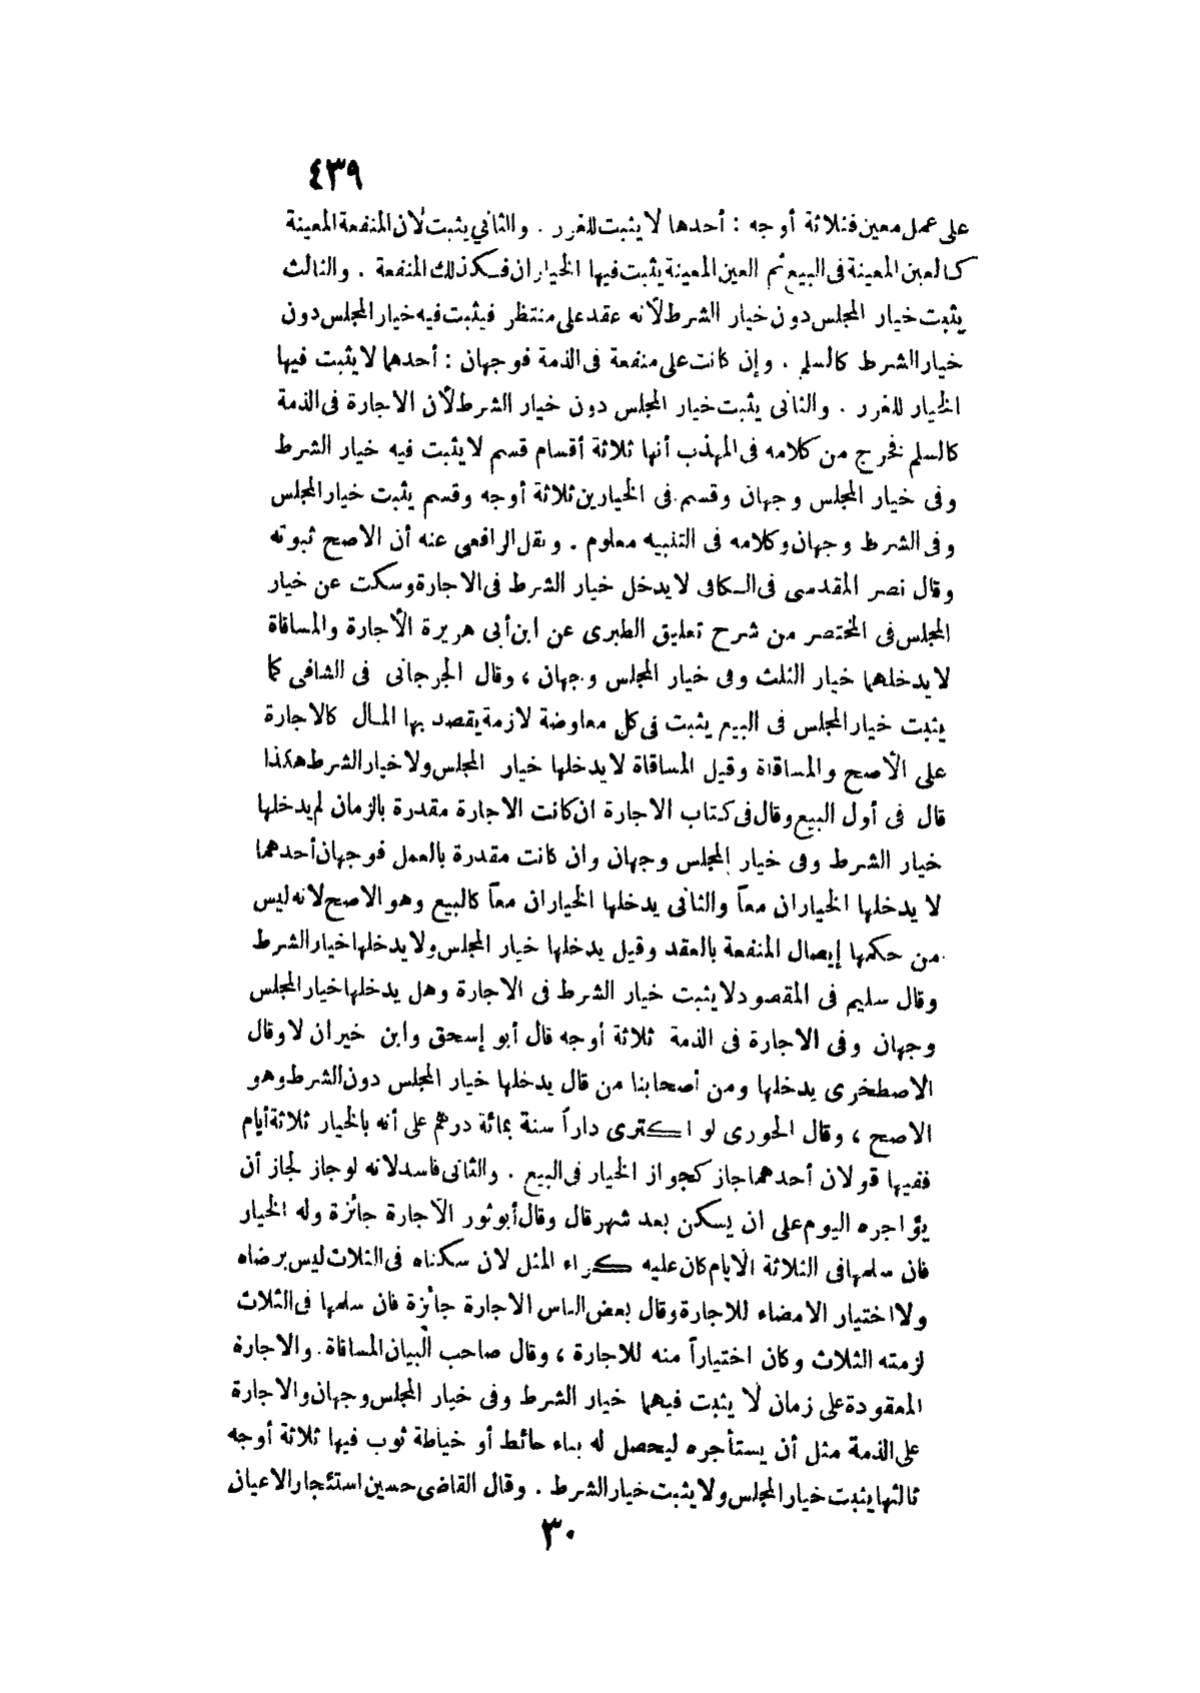 ٤٣٩
على عمل معين فثلاثة أوجه : أحدها لا يثبت للغرر . والثاني يثبت لأن المنفعة المعينة
كالعين المعينة فى البيع ثم العين المعينة يثبت فيها الخياران فكذلك المنفعة . والثالث
يثبت خيار المجلس دون خيار الشرط لأنه عقد على منتظر فيثبت فيه خيار المجلس دون
خيار الشرط كالسلم . وإن كانت على منفعة فى الذمة فوجهان : أحدهما لا يثبت فيها
الخيار للغرر . والثانى يثبت خيار المجلس دون خيار الشرط لأن الاجارة فى الذمة
كالسلم فخرج من كلامه فى المهذب أنها ثلاثة أقسام قسم لا يثبت فيه خيار الشرط
وفى خيار المجلس وجهان وقسم فى الخيارين ثلاثة أوجه وقسم يثبت خيار المجلس
وفى الشرط وجهان وكلامه فى التنبيه معلوم . ونقل الرافعى عنه أن الاصح ثبوته
وقال نصر المقدسى فى الكافى لا يدخل خيار الشرط فى الاجارة وسكت عن خيار
المجلس فى المختصر من شرح تعليق الطبرى عن ابن أبى هريرة الأجارة والمساقاة
لا يدخلهما خيار الثلث وفى خيار المجلس وجهان ، وقال الجرجانى فى الشافى كما
يثبت خيار المجلس فى البيع يثبت فى كل معاوضة لازمة يقصد بها المال كالاجارة
على الأصح والمساقاة وقيل المساقاة لا يدخلها خيار المجلس ولا خيار الشرط هكذا
قال فى أول البيع وقال فى كتاب الاجارة ان كانت الاجارة مقدرة بالزمان لم يدخلها
خيار الشرط وفى خيار المجلس وجهان وان كانت مقدرة بالعمل فوجهان أحدهما
لا يدخلها الخياران معاً والثانى يدخلها الخياران معاً كالبيع وهو الاصح لانه ليس
من حكمها إيصال المنفعة بالعقد وقيل يدخلها خيار المجلس ولا يدخلها خيار الشرط
وقال سليم فى المقصود لا يثبت خيار الشرط فى الاجارة وهل يدخلها خيار المجلس
وجهان وفى الاجارة فى الذمة ثلاثة أوجه قال أبو إسحق وابن خيران لا وقال
الاصطخرى يدخلها ومن أصحابنا من قال يدخلها خيار المجلس دون الشرط وهو
الاصح ، وقال الحورى لو اكترى داراً سنة بمائة درهم على أنه بالخيار ثلاثة أيام
ففيها قولان أحدهما جاز كجواز الخيار فى البيع . والثانى فاسد لانه لو جاز لجاز أن
يؤاجره اليوم على ان يسكن بعد شهر قال وقال أبو ثور الأجارة جائزة وله الخيار
فان سلمها فى الثلاثة الأيام كان عليه كراء المثل لان سكناه فى الثلاث ليس برضاه
ولا اختيار الامضاء للاجارة وقال بعض الناس الاجارة جائزة فان سلمها فى الثلاث
لزمته الثلاث وكان اختياراً منه للاجارة ، وقال صاحب البيان المساقاة والاجارة
المعقودة على زمان لا يثبت فيهما خيار الشرط وفى خيار المجلس وجهان والاجارة
على الذمة مثل أن يستأجره ليحصل له بناء حائط أو خياطة ثوب فيها ثلاثة أوجه
ثالثها يثبت خيار المجلس ولا يثبت خيار الشرط . وقال القاضى حسين استئجار الاعيان
٣٠